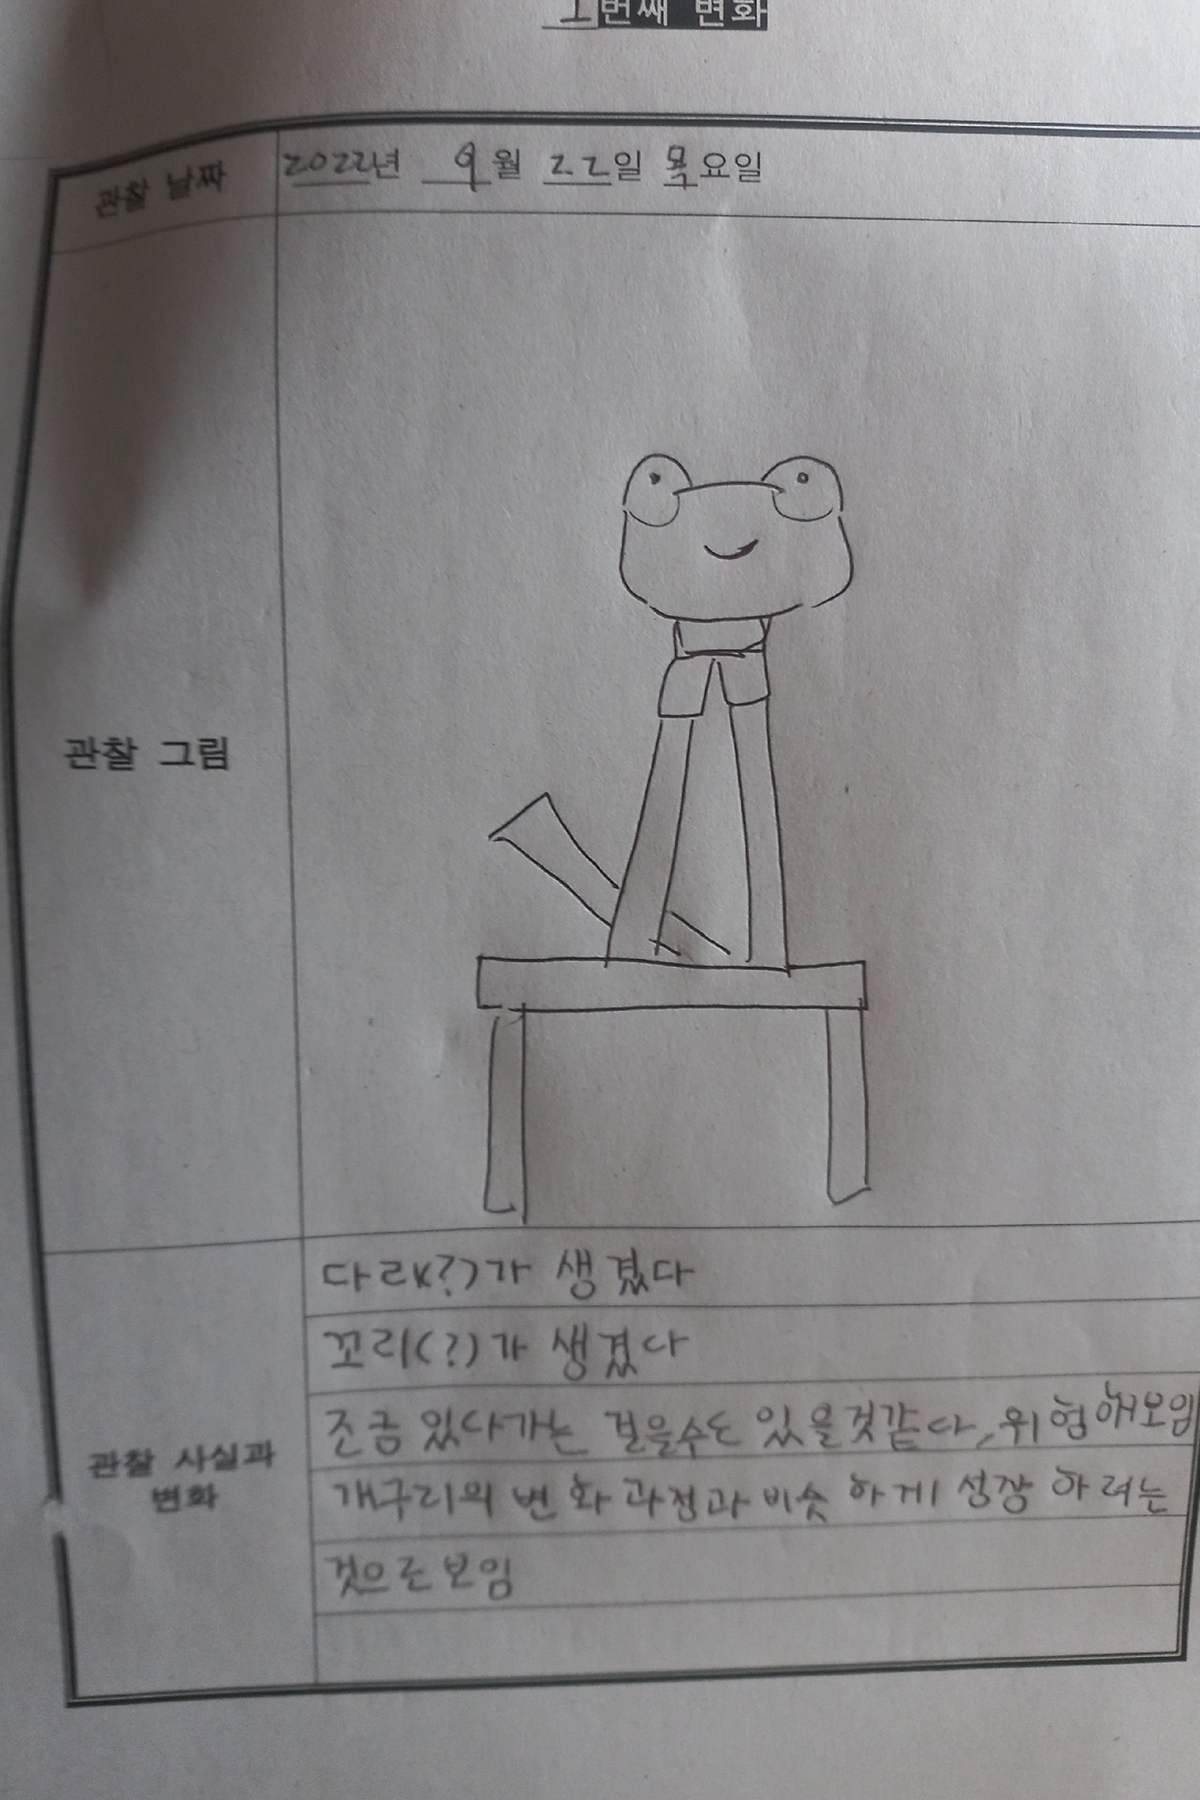 1번째 변화
관찰 날짜
2022년 9월 22일 목요일
관찰 그림
다리(?)가 생겼다
꼬리(?)가 생겼다
조금 있다가는 걸을수도 있을것같다, 위험해보임
관찰 사실과
변화
개구리의 변화과정과 비슷하게 성장 하려는
것으로 보임